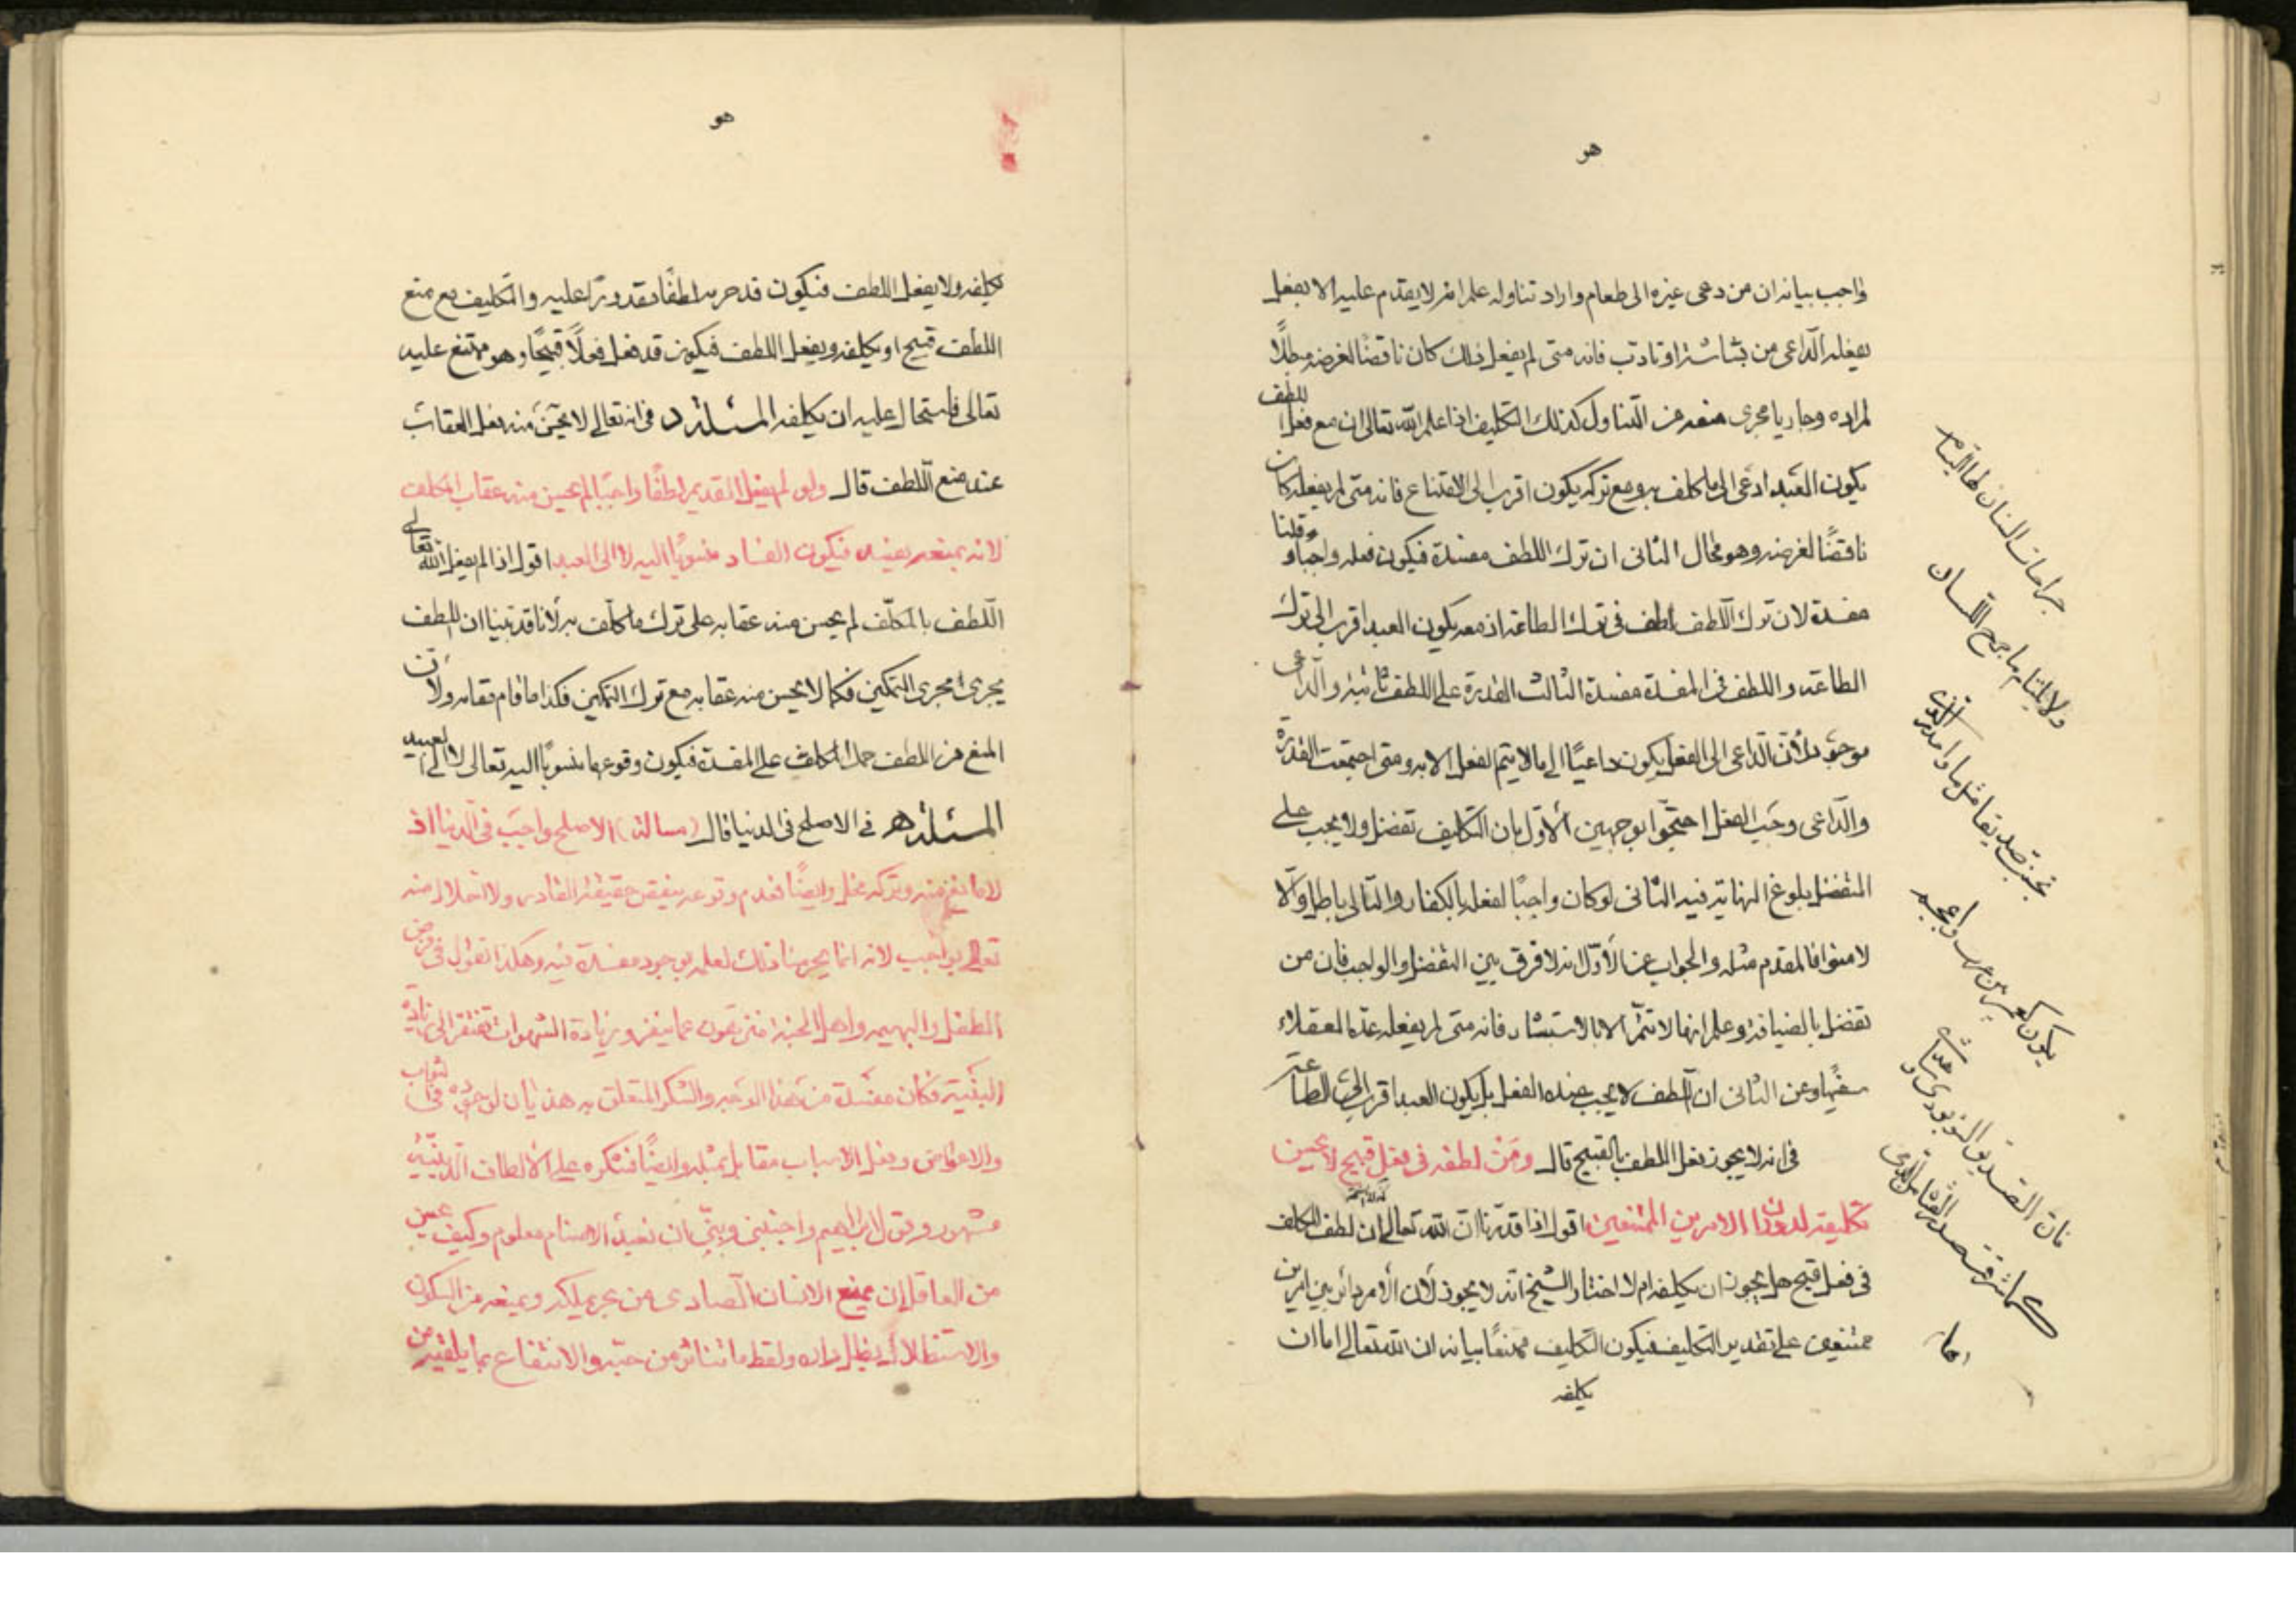 هو
واجب بيانه ان من دعى غيره الى طعام واراد تناوله علم انه لا يقدم عليه الا بفعل
يفعله الداعى من بشاشة او تادب فانه متى لم يفعل ذلك كان ناقضا لغرضه مبطلًا
لمراده وجاريا مجرى منعه من التناول كذلك التكليف اذا علم الله تعالى ان مع فعل اللطف
يكون العبد ادعى الى ما كلف به ومع تركه يكون اقرب الى الامتناع فانه متى لم يفعله كان
ناقضًا لغرضه وهو محال الثانى ان ترك اللطف مفسدة فيكون فعله واجبا وقلنا
مفسدة لان ترك اللطف لطف فى ترك الطاعة اذ معه يكون العبد اقرب الى ترك
الطاعة واللطف فى المفسدة مفسدة الثالث القدرة على اللطف ثابتة والداعى
موجود لأن الداعى الى الفعل يكون داعيًا الى ما لا يتم الفعل الا به ومتى اجتمعت القدرة
والداعى وجب الفعل احتجّوا بوجهين الأول بان التكليف تفضل ولا يجب على
المتفضل بلوغ النهاية فيه الثانى لو كان واجبًا لفعله بالكفار والتالى باطل والا
لامنوا فالمقدم مثله والجواب عن الأول انه لا فرق بين التفضل والواجب فان من
تفضل بالضيافة وعلم انها لا تتم الا بالاستبشار فانه متى لم يفعله عده العقلاء
سفيهًا وعن الثانى ان اللطف لا يجب عنده الفعل بل يكون العبد اقرب الى الطاعة
فى انه لا يجوز فعل اللطف بالقبيح قال ومن لطفه فى فعل قبيح لا يحسن
تكليفه الامرين الممتنعين اقول اذا قدرنا ان الله تعالى ان لطف المكلف
فى فعل قبيح هل يجوز ان يكلفه ام لا اختار الشيخ انه لا يجوز لان الأمر دائر بين امرين
ممتنعين على تقدير التكليف فيكون التكليف ممتنعًا بيانه ان الله تعالى اما ان
يكلفه
جراحات السنان لها التيام
ولا يلتام ما جرح اللسان
هو
تكليفه ولا يفعل اللطف فيكون قد حرمه لطفًا مقدورا عليه والتكليف مع منع
اللطف قبيح او يكلفه ويفعل اللطف فيكون قد فعل فعلًا قبيحًا وهو ممتنع عليه
تعالى فاستحال عليه ان يكلفه المسئلة د فى انه تعالى لا يحسن منه فعل العقاب
عند منع اللطف قال ولو لم يفعل القديم لطفًا واجبًا لم يحسن منه عقاب المكلف
لانه بمنعه يفسد فيكون الفساد منسوبًا اليه لا الى العبد اقول اذا لم يفعل الله تعالى
اللطف بالمكلف لم يحسن منه عقابه على ترك ما كلف به لأنا قد بينا ان اللطف
يجرى مجرى التمكين فكما لا يحسن منه عقابه مع ترك التمكين فكذا ما قام مقامه ولأن
المنع من اللطف حمل المكلف على المفسدة فيكون وقوعها منسوبًا اليه تعالى لا الى العبيد
المسئلة ه فى الاصلح فى الدنيا قال (مسالة) الاصلح واجب فى الدنيا اذ
لا مانع منه وتركه بخل وايضًا فعدم وقوعه ينقض حقيقة القادر ولا اخلال منه
تعالى بواجب لانه انما يحرمنا ذلك لعلمه بوجود مفسدة فيه وهكذا نقول فى فرض
الطفل والبهيمه واهل الجنة منزهون عما ينفر وزيادة الشهوات تفتقر الى زيادة
البنية فكان مفسدة من هذا الوجه والشكر المتعلق به هذيان لوجوبه فى الثواب
والاعواض وفعل الاسباب مقابل بمثله وايضًا فنشكره على الالطاف الدينية
مشهور وقول ابراهيم واجنبنى وبنيّ ان نعبد الاصنام معلوم وكيف يحسن
من العاقل ان يمنع الانسان الصادى من بحر يملكه ويمنعه من السكون
والاستظلال بظل داره ولقط ما تناثر من حبه والانتفاع بما يلقيه من